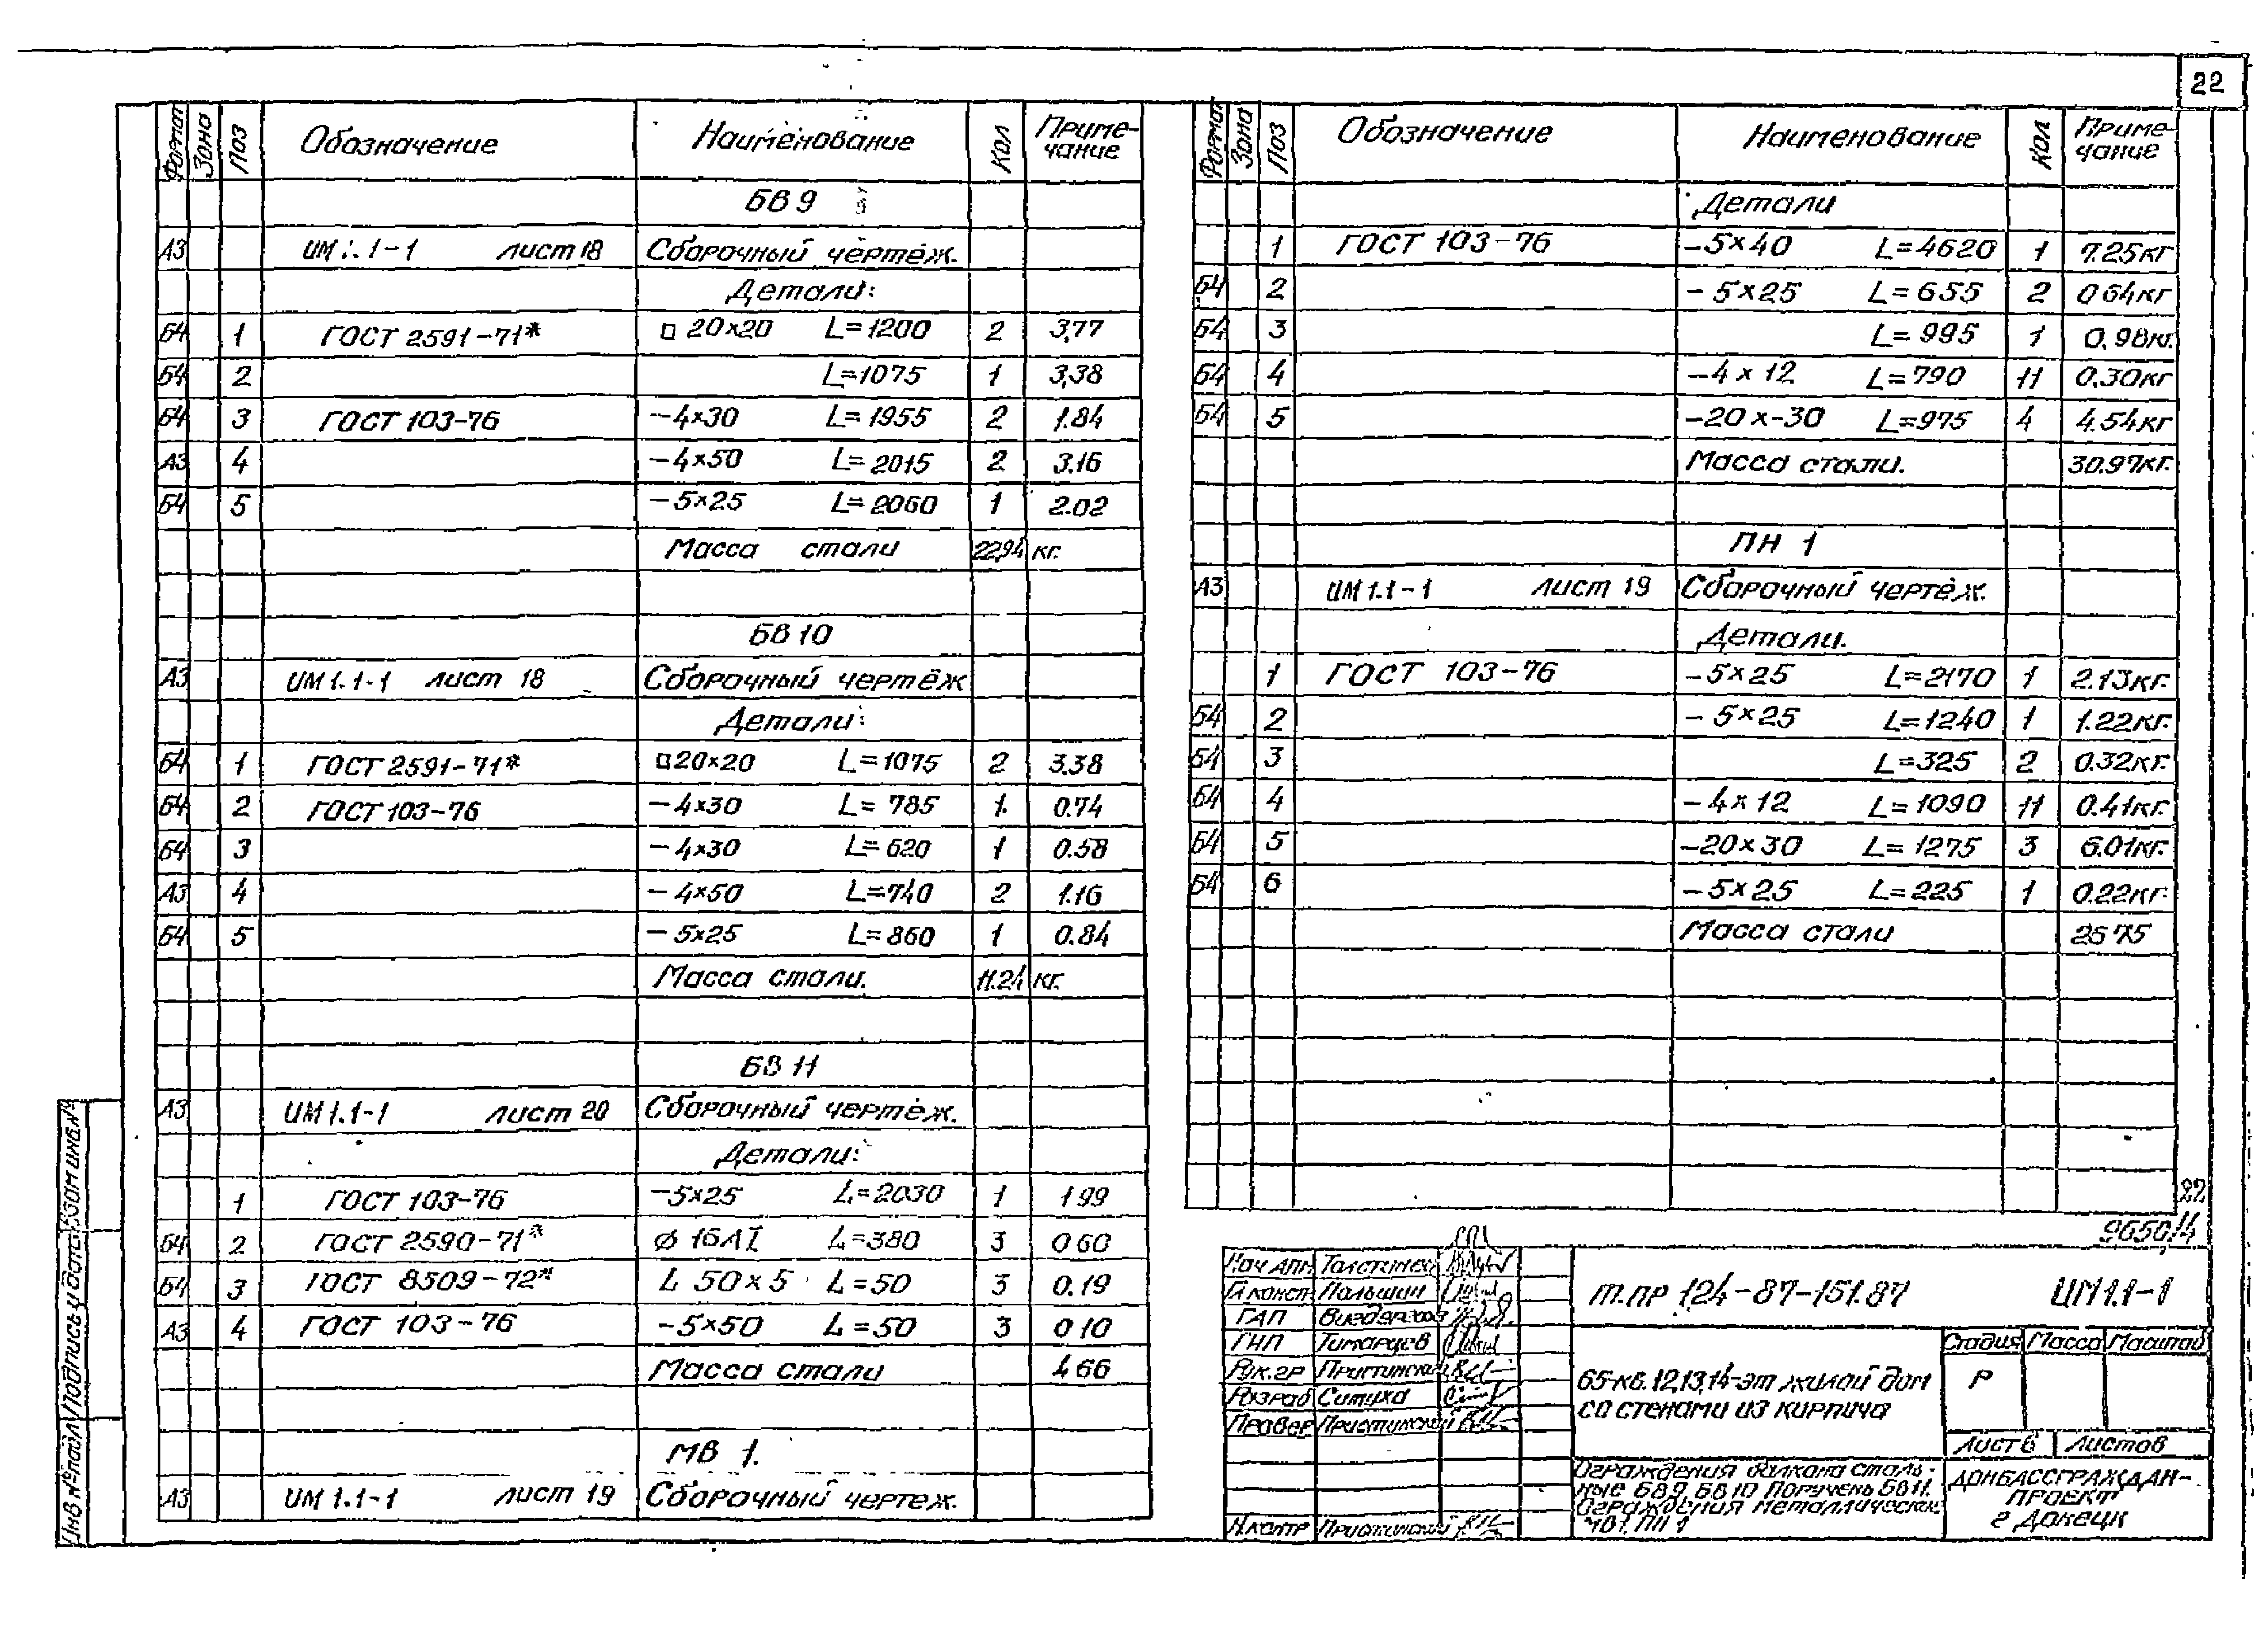 22
Формат Зона Поз Обозначение Наименование Кол Приме-чание
БВ 9
А3 ИМ 1.1-1 лист 18 Сборочный чертёж.
Детали:
Б4 1 ГОСТ 2591-71* □ 20×20 L=1200 2 3,77
Б4 2 L=1075 1 3,38
Б4 3 ГОСТ 103-76 -4×30 L=1955 2 1.84
А3 4 -4×50 L=2015 2 3.16
Б4 5 -5×25 L=2060 1 2.02
Масса стали 22,94 кг.
БВ 10
А3 ИМ 1.1-1 лист 18 Сборочный чертёж
Детали:
Б4 1 ГОСТ 2591-71* □20×20 L=1075 2 3.38
Б4 2 ГОСТ 103-76 -4×30 L=785 1. 0.74
Б4 3 -4×30 L=620 1 0.58
А3 4 -4×50 L=740 2 1.16
Б4 5 -5×25 L=860 1 0.84
Масса стали. 11.24 кг.
БВ 11
А3 ИМ 1.1-1 лист 20 Сборочный чертёж.
Детали:
1 ГОСТ 103-76 -5×25 L=2030 1 1 99
Б4 2 ГОСТ 2590-71* ∅ 16АI L=380 3 0 60
Б4 3 ГОСТ 8509-72* L 50×5 L=50 3 0.19
А3 4 ГОСТ 103-76 -5×50 L=50 3 0 10
Масса стали 4 66
МВ 1.
А3 ИМ 1.1-1 лист 19 Сборочный чертеж.
Формат Зона Поз Обозначение Наименование Кол Приме-чание
Детали
1 ГОСТ 103-76 -5×40 L=4620 1 7.25кг
Б4 2 -5×25 L=655 2 0 64кг
Б4 3 L=995 1 0.98кг.
Б4 4 -4×12 L=790 11 0.30кг
Б4 5 -20×-30 L=975 4 4.54кг
Масса стали. 30.97кг.
ПН 1
А3 ИМ 1.1-1 лист 19 Сборочный чертёж.
Детали.
1 ГОСТ 103-76 -5×25 L=2170 1 2.13кг.
Б4 2 -5×25 L=1240 1 1.22кг.
Б4 3 L=325 2 0.32кг.
Б4 4 -4×12 L=1090 11 0.41кг.
Б4 5 -20×30 L=1275 3 6.01кг.
Б4 6 -5×25 L=225 1 0.22кг.
Масса стали 26 75
22
9650/4
Нач АПМ
Гл конст Пальшин
ГАП
ГНП Тимарцев
Рук.гр Приатинский
Разраб Ситуха
Провер Приатинский
Н.контр Приатинский
т.пр 124-87-151.87 ИМ1.1-1
65-кв.12,13,14-эт жилой дом
со стенами из кирпича
Стадия Масса Масштаб
Р
Лист 6 Листов
Ограждения балкона сталь-
ные БВ9, БВ10 Поручень БВ11.
Ограждения металлические
МВ1, ПН 1
ДОНБАССГРАЖДАН-
ПРОЕКТ
г Донецк
Инв № подл Подпись и дата Взам инв №